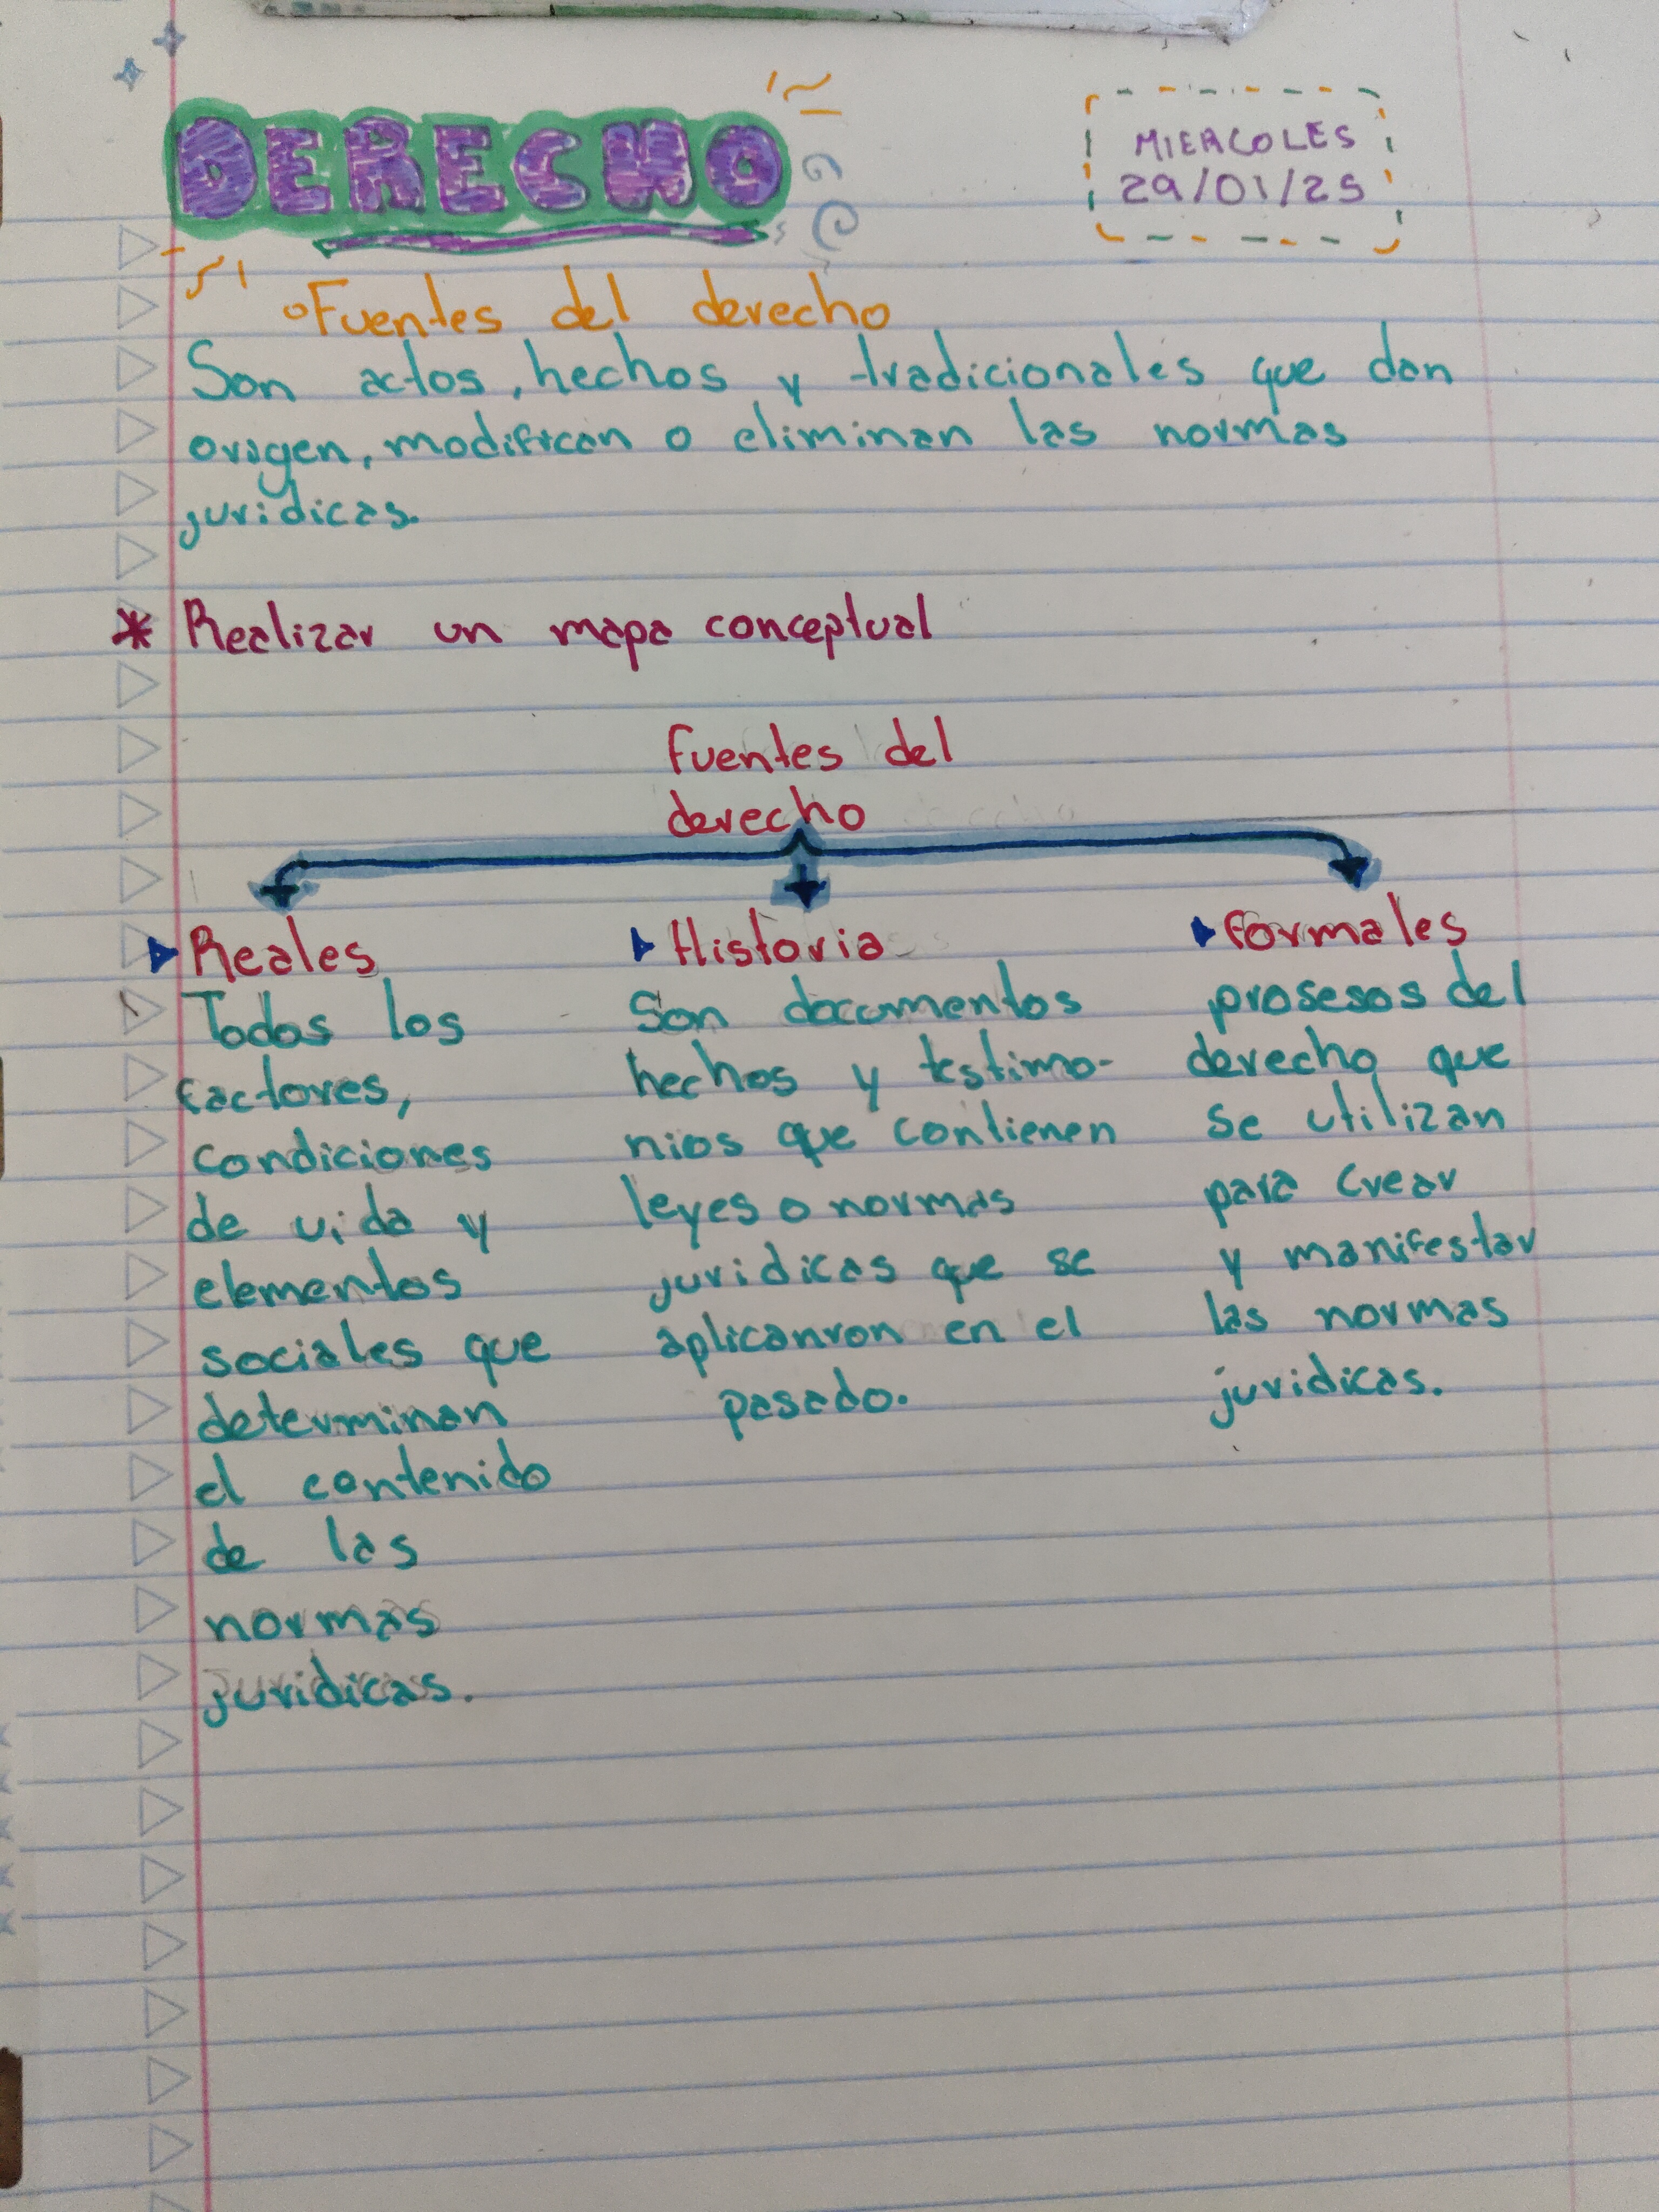 DERECHO
MIERCOLES
29/01/25
Fuentes del derecho
Son actos, hechos y tradicionales que dan
origen, modifican o eliminan las normas
juridicas.
* Realizar un mapa conceptual
fuentes del
derecho
Reales
Todos los
factores,
condiciones
de vida y
elementos
sociales que
determinan
el contenido
de las
normas
juridicas.
Historia
Son documentos
hechos y testimo-
nios que contienen
leyes o normas
juridicas que se
aplicanron en el
pasado.
formales
prosesos del
derecho que
se utilizan
para crear
y manifestar
las normas
juridicas.